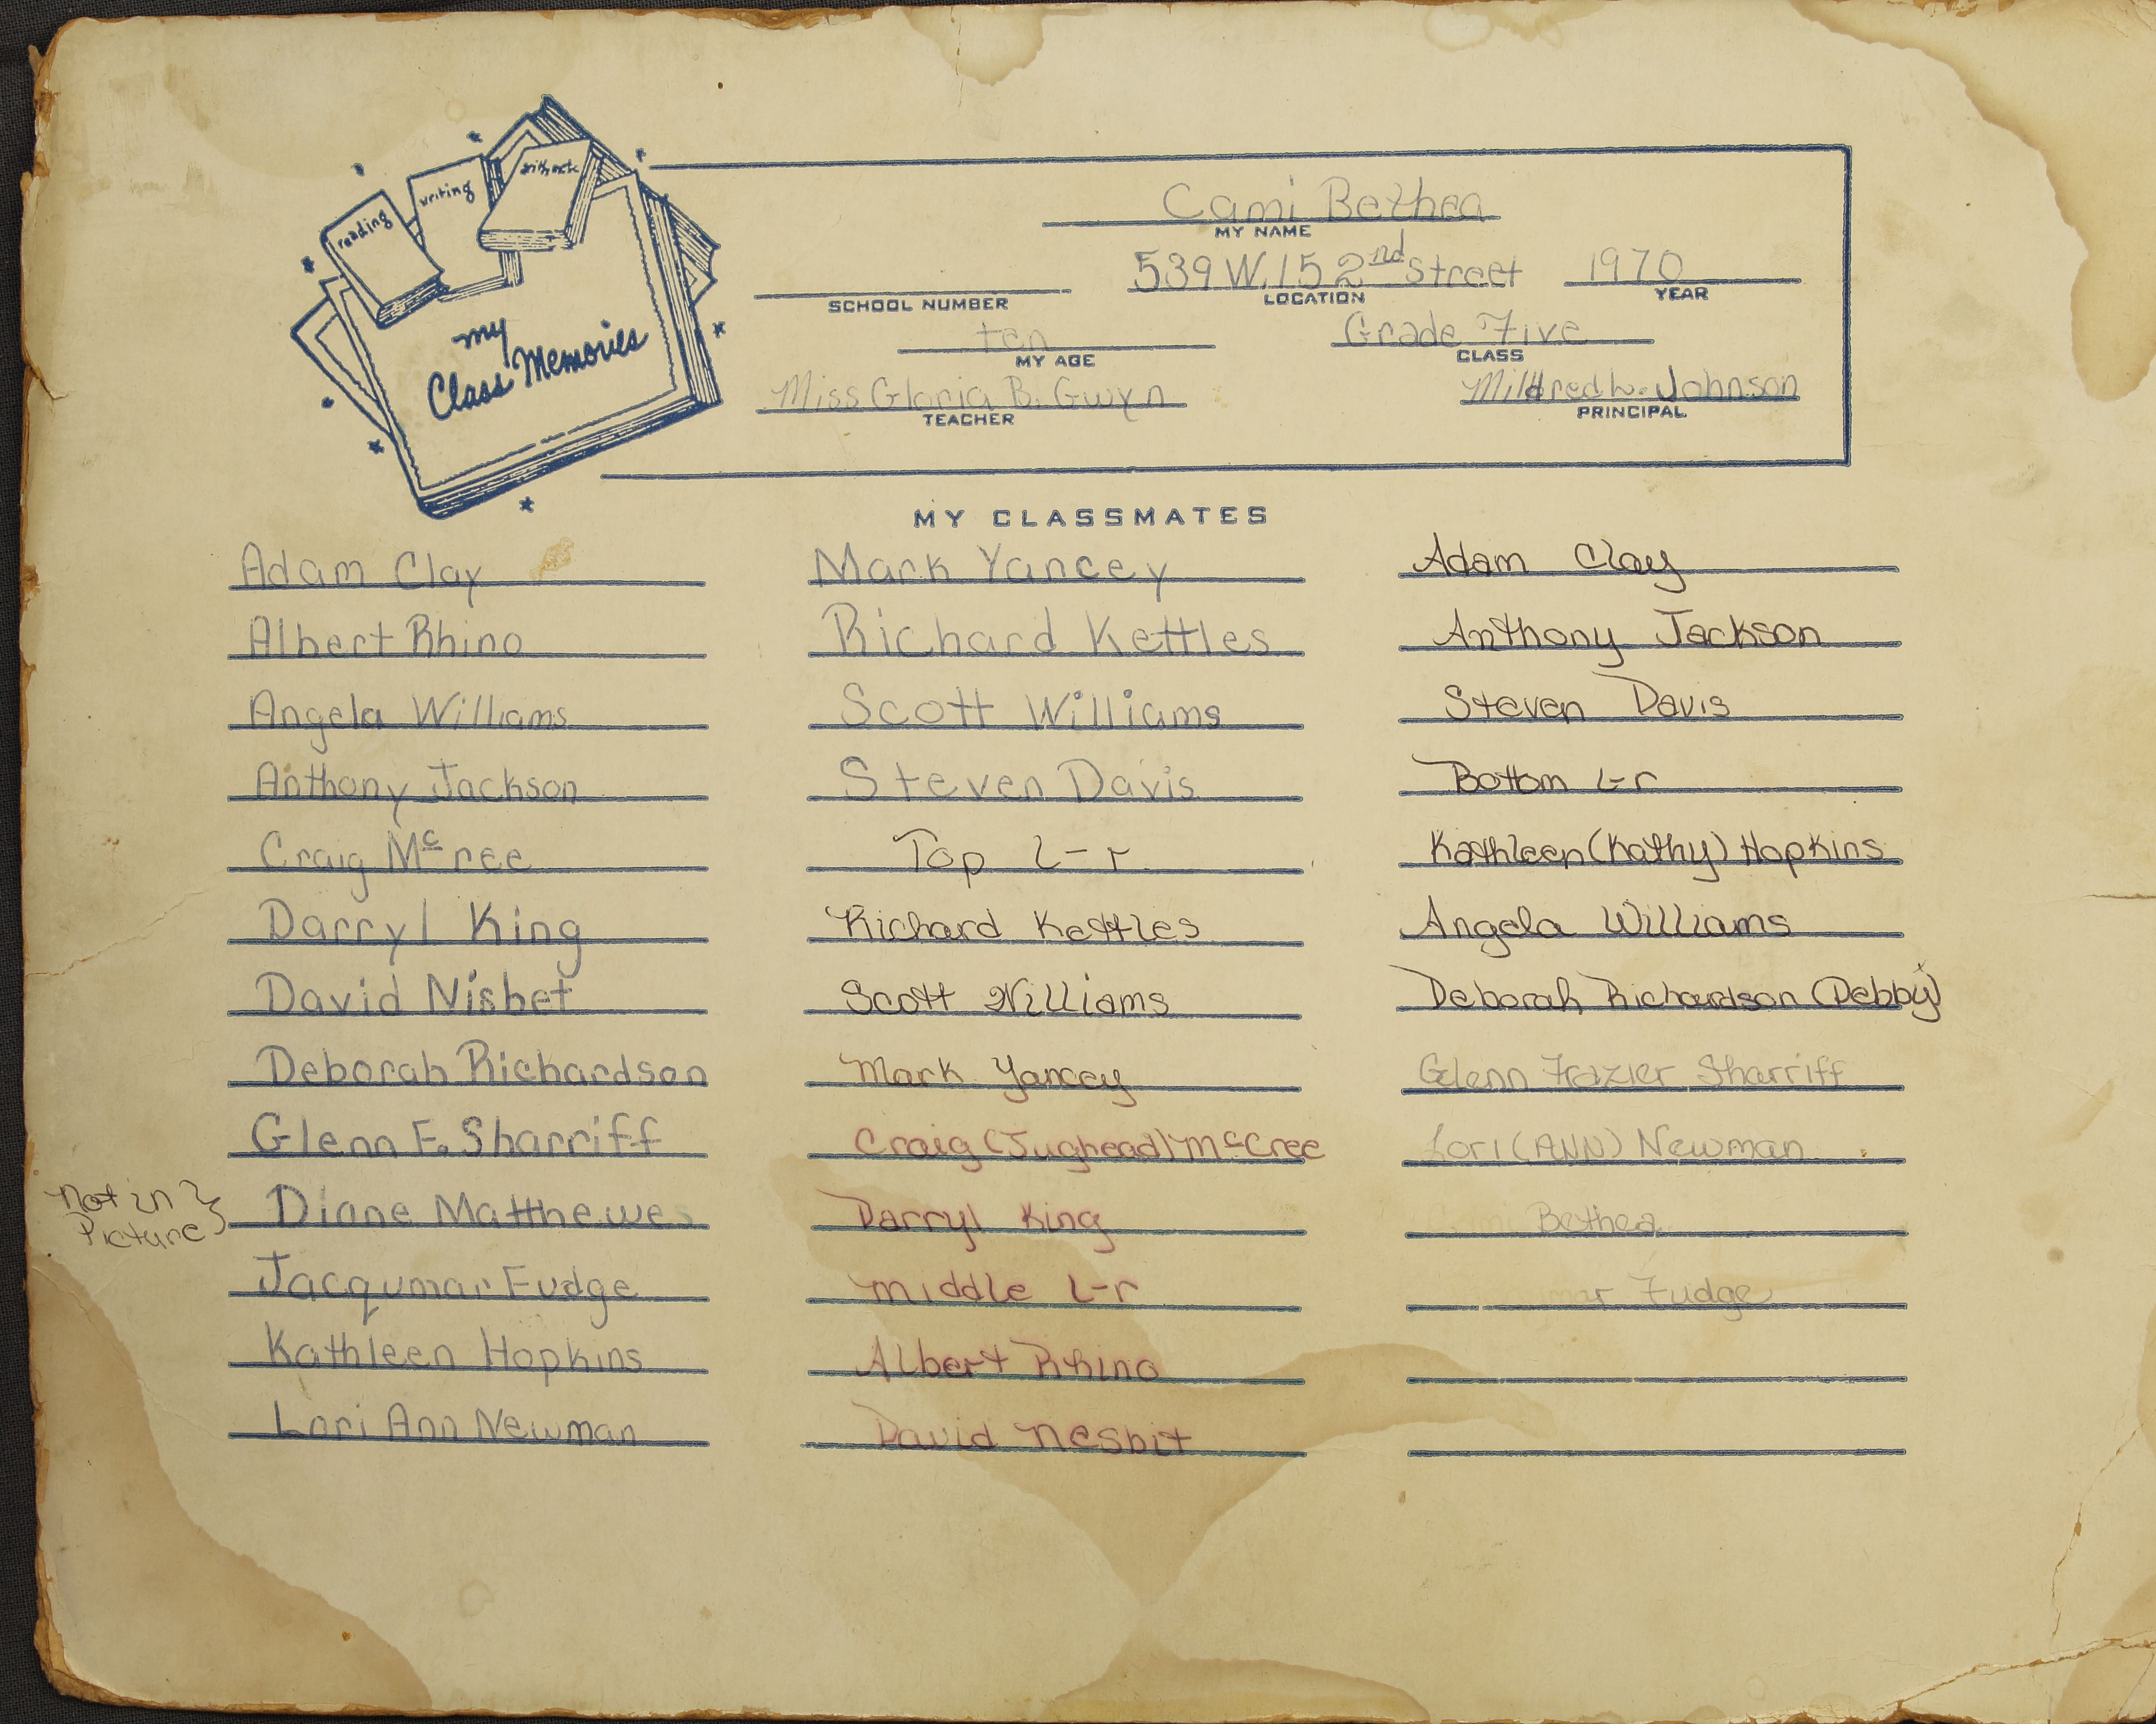 reading
writing
my
Class Memories
Cami Bethea
MY NAME
539 W. 152nd Street 1970
SCHOOL NUMBER LOCATION YEAR
ten Grade Five
MY AGE CLASS
Miss Gloria B. Gwyn Mildred L. Johnson
TEACHER PRINCIPAL
MY CLASSMATES
Adam Clay
Albert Rhino
Angela Williams
Anthony Jackson
Craig Mcree
Darryl King
David Nisbet
Deborah Richardson
Glenn F. Sharriff
Not in
Picture
Diane Matthewes
Jacqumar Fudge
Kathleen Hopkins
Lori Ann Newman
Mark Yancey
Richard Kettles
Scott Williams
Steven Davis
Top L-r
Richard Kettles
Scott Williams
Mark Yancey
Craig (Jughead) McCree
Darryl King
Middle L-r
Albert Rhino
David Nesbit
Adam Clay
Anthony Jackson
Steven Davis
Bottom L-r
Kathleen (Kathy) Hopkins
Angela Williams
Deborah Richardson (Debby)
Glenn Frazier Sharriff
Lori (ANN) Newman
Cami Bethea
Fudge